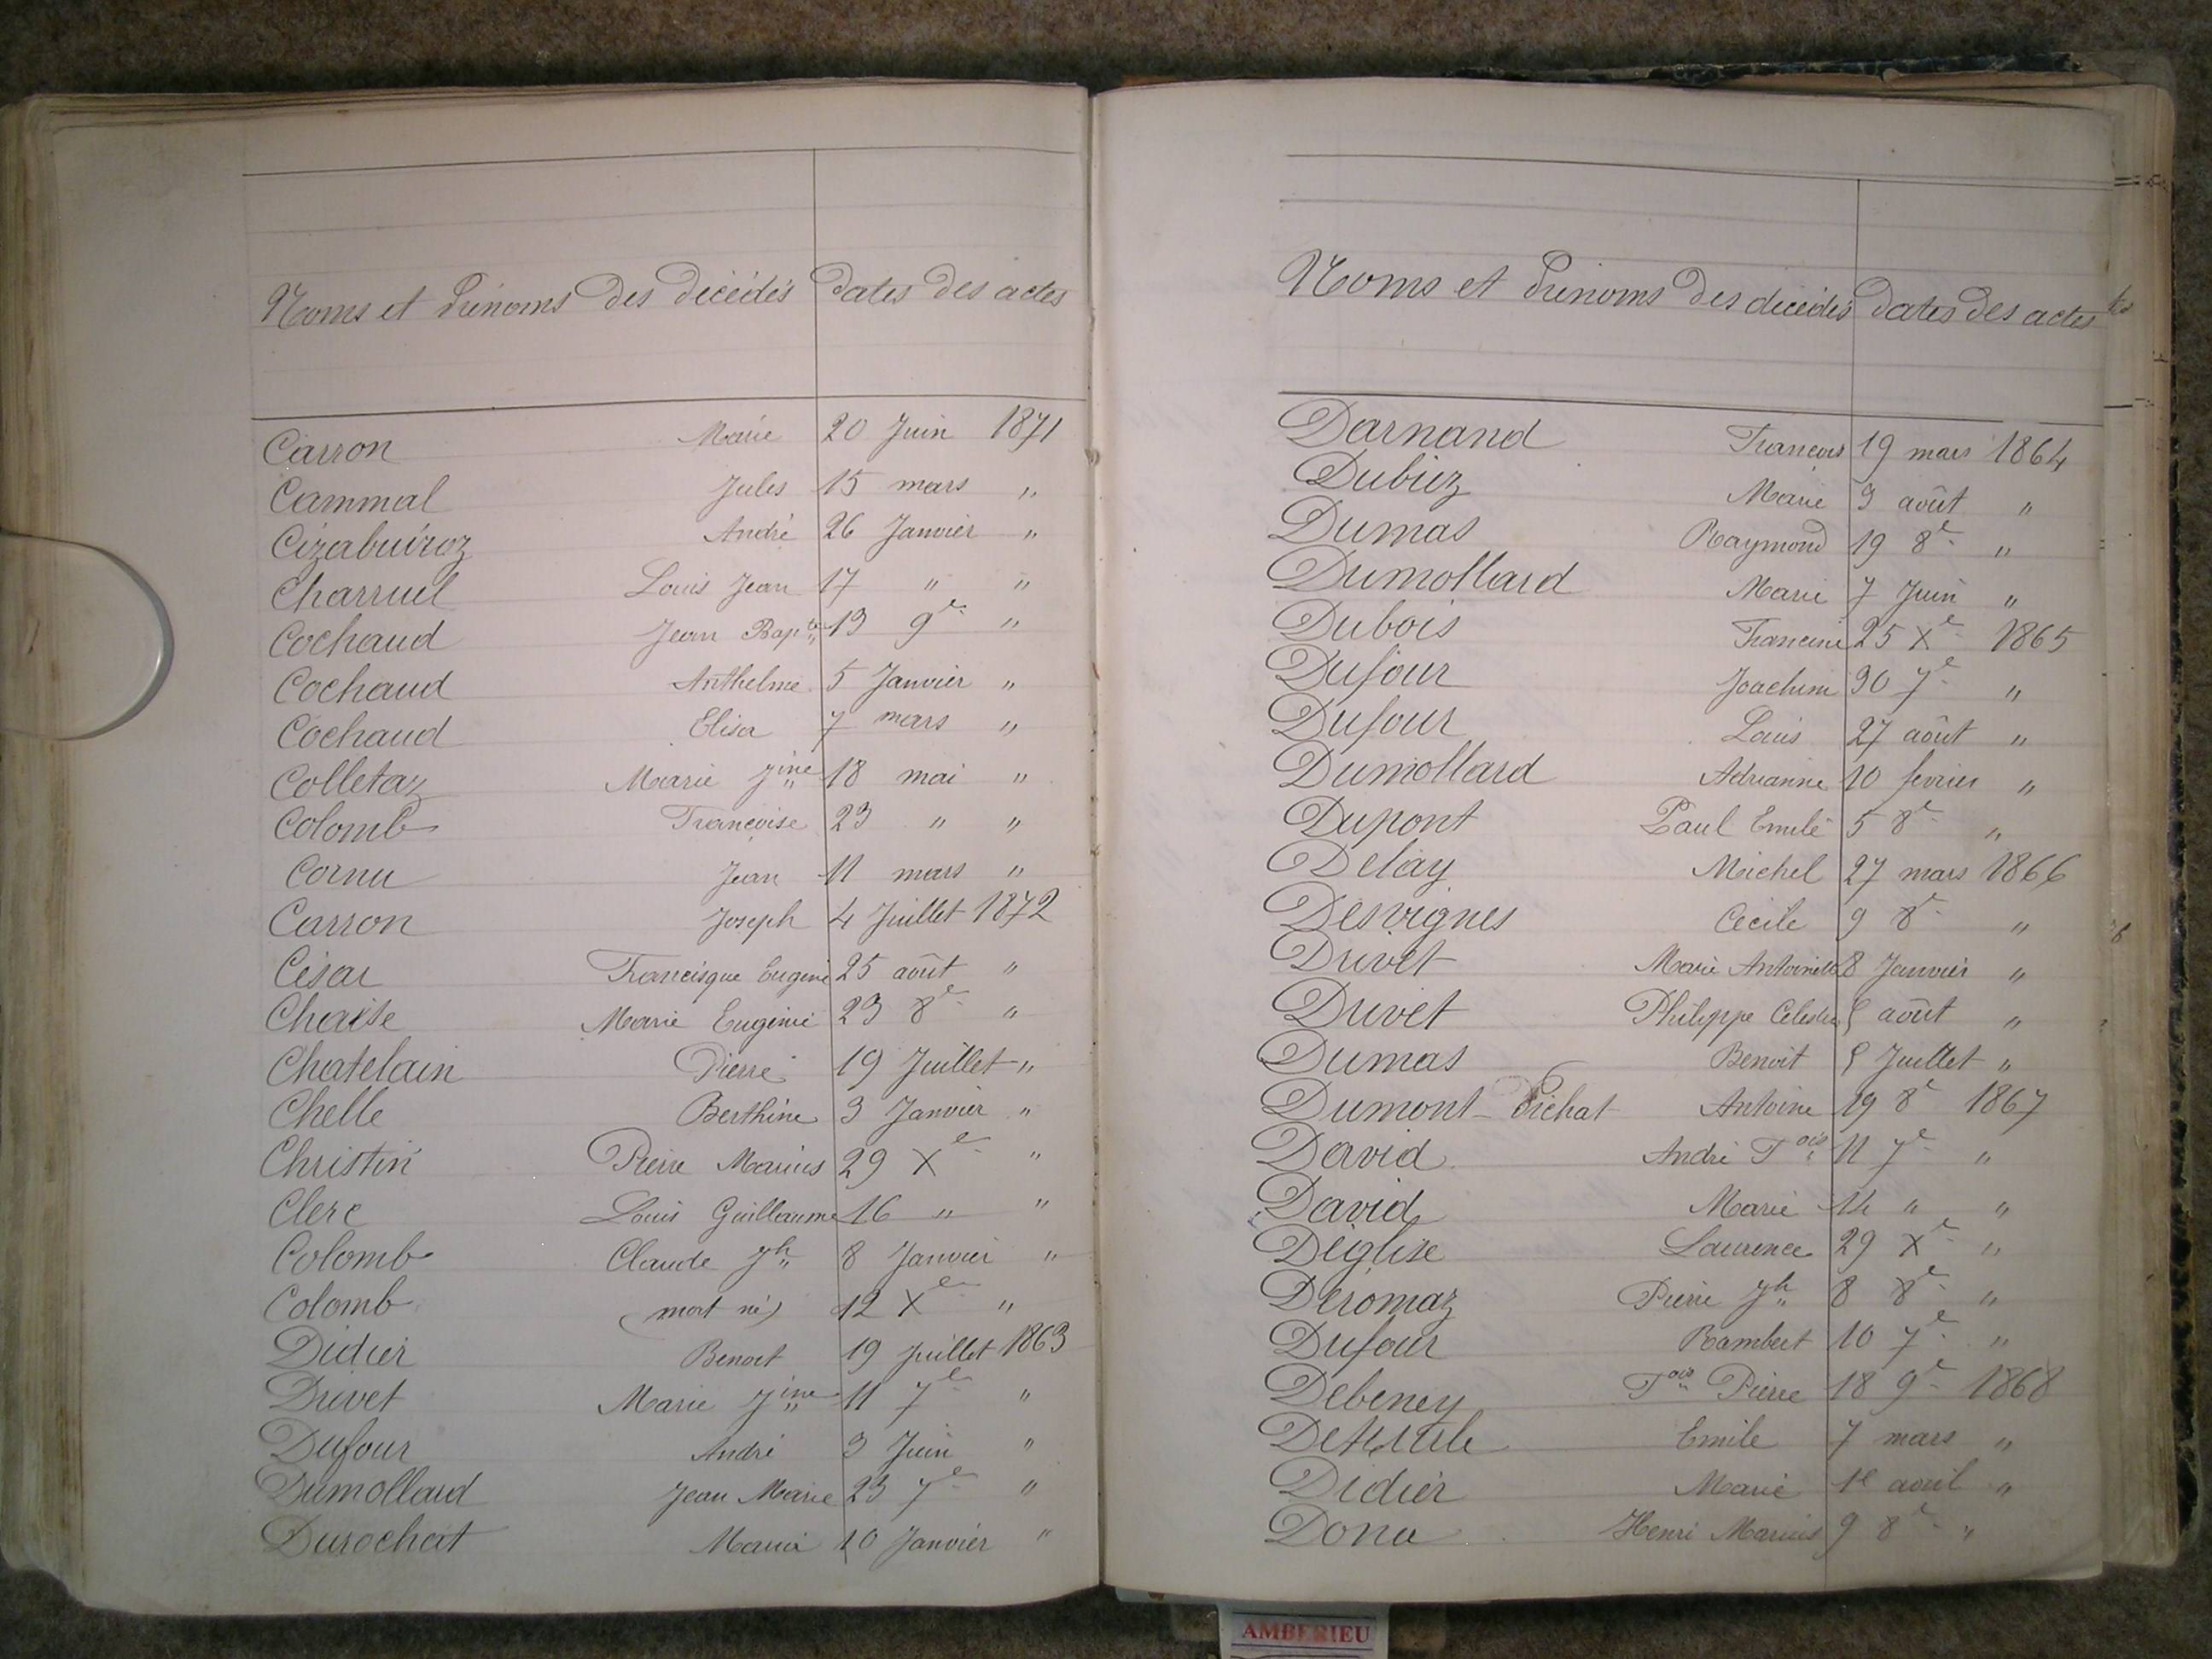 Noms et Prénoms des décédés dates des actes
Carron Marie 20 Juin 1871
Cammal Jules 15 mars "
Cizabuiroz André 26 Janvier "
Charruel Louis Jean 17 " "
Cochaud Jean Bapte 13 9e "
Cochaud Anthelme 5 Janvier "
Cochaud Elisa 7 mars "
Colletaz Marie Jine 18 mai "
Colomb Françoise 23 " "
Cornu Jean 11 mars "
Carron Joseph 4 Juillet 1872
César Francisque Eugene 25 août "
Chaise Marie Eugénie 23 8e "
Chatelain Pierre 19 Juillet "
Chelle Berthine 3 Janvier "
Christin Pierre Marius 29 Xe "
Clerc Louis Guillaume 16 " "
Colomb Claude Jh 8 Janvier "
Colomb (mort né) 12 Xe "
Didier Benoit 19 Juillet 1863
Drivet Marie Jine 11 7e "
Dufour André 3 Juin "
Dumollard Jean Marie 23 7e "
Durochat Maria 10 Janvier "
Noms et Prénoms des décédés dates des actes
Darnand François 19 mars 1864
Dubiez Marie 3 août "
Dumas Raymond 19 8e "
Dumollard Marie 7 Juin "
Dubois Francine 25 Xe 1865
Dufour Joachim 30 7e "
Dufour Louis 27 août "
Dumollard Adrianne 10 fevrier "
Dupont Paul Emile 5 8e "
Delay Michel 27 mars 1866
Desvignes Cécile 9 8e "
Drivet Marie Antoinette 8 Janvier "
Drivet Philippe 5 août "
Dumas Benoit 5 Juillet "
Dumont-Pichat Antoine 19 8e 1867
David André Fois 11 7e "
David Marie 14 " "
Déglise Laurence 29 Xe "
Deromaz Pierre Jh 8 8e "
Dufour Rambert 10 7e "
Debeney Fois Pierre 18 9e 1868
Emile 7 mars "
Didier Marie 1e avril "
Dona Henri Marius 9 8e "
AMBERIEU